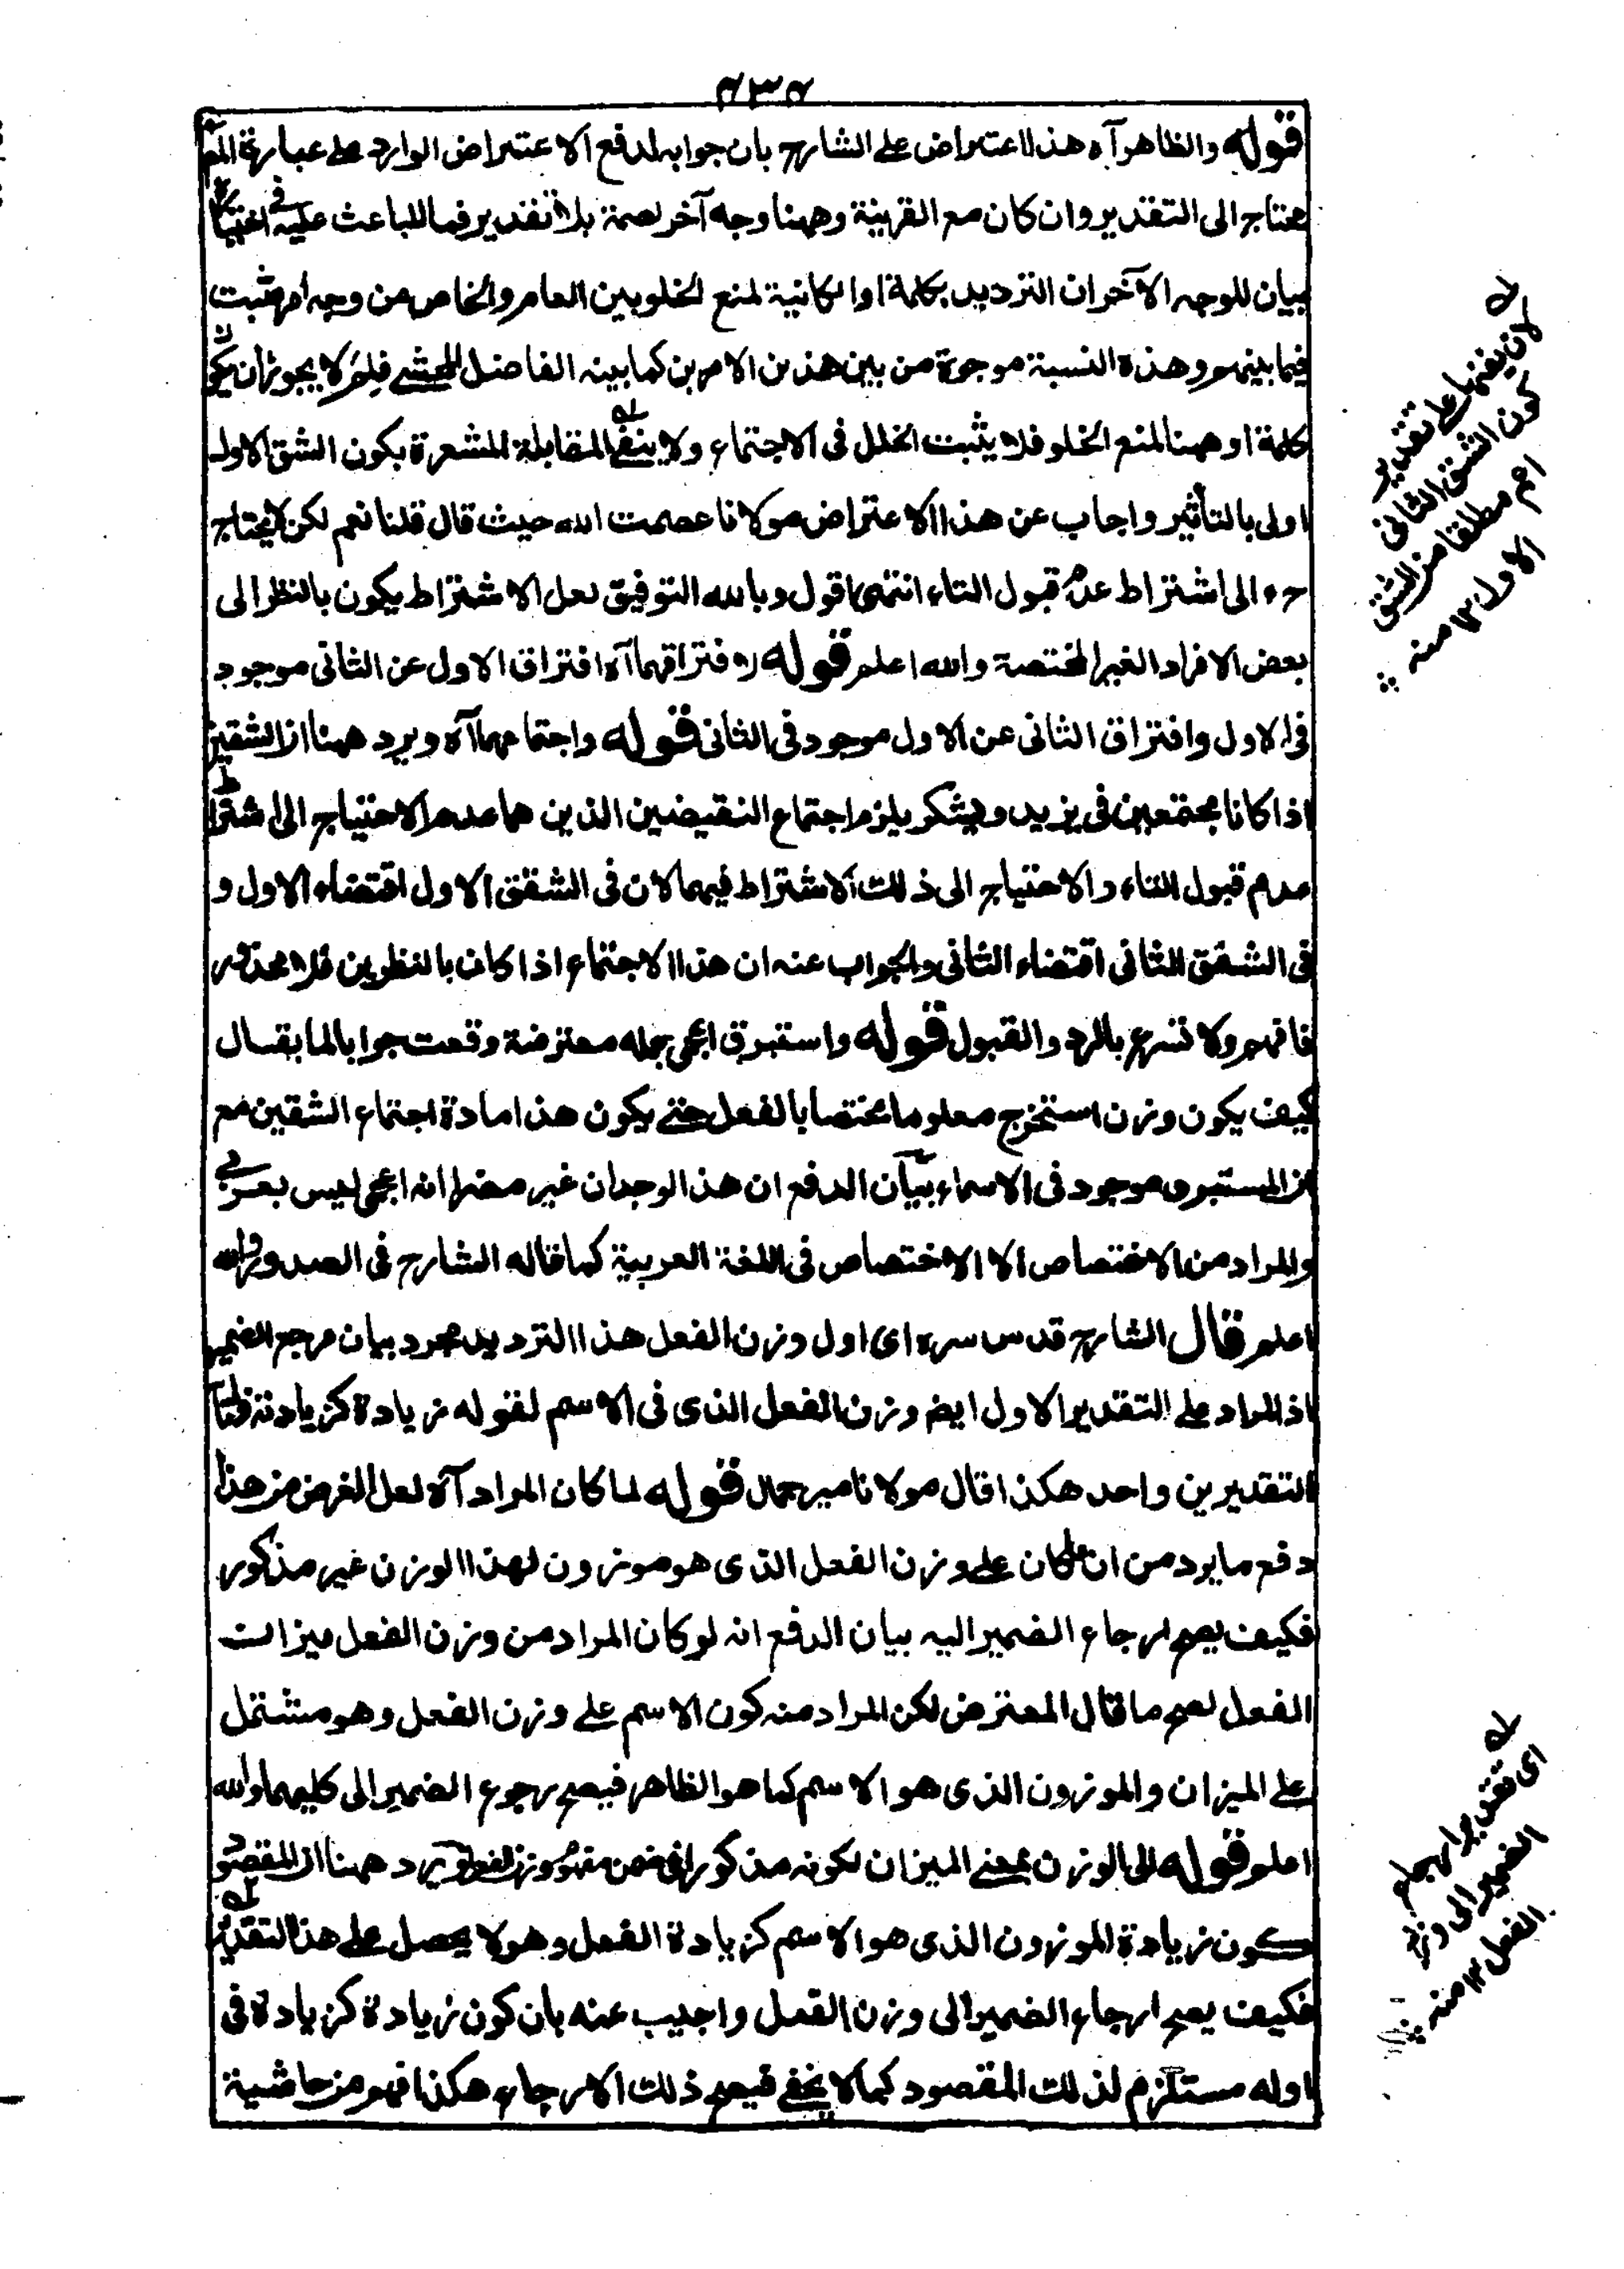 ٢٣٢
قوله والظاهر آه هذا الاعتراض على الشارح بان جوابه لدفع الاعتراض الوارد على عبارة المص
محتاج الى التقدير وان كان مع القرينة وههنا وجه آخر لصحته بلا تقدير فما للباعث عليه فى اختيار
بيان للوجه الآخر ان الترديد بكلمة او الكائنية لمنع الخلو بين العام والخاص من وجه امر ثبت
فيما بينهم وهذه النسبة موجودة من بين هذين الامرين كما بينه الفاضل المحشى فلم لا يجوز ان يكون
كلمة او ههنا لمنع الخلو فلا يثبت الخلل فى الاجتماع ولا ينفى المقابلة المشعرة بكون الشق الاول
اولى بالتأثير واجاب عن هذا الاعتراض مولانا عصمت الله حيث قال قلنا نعم لكن لا يحتاج
ح ه الى اشتراط عدم قبول التاء انتهى اقول وبالله التوفيق لعل الاشتراط يكون بالنظر الى
بعض الافراد الغير المختصة والله اعلم قوله وافتراقهما آه افتراق الاول عن الثانى موجود
فى الاول وافتراق الثانى عن الاول موجود فى الثانى قوله واجتماعهما آه ويرد ههنا ان الشقين
اذا كانا مجتمعين فى يزيد ويشكر يلزم اجتماع النقيضين الذين هما عدم الاحتياج الى اشتراط
عدم قبول التاء والاحتياج الى ذلك الاشتراط فيهما لان فى الشقق الاول اقتضاء الاول و
فى الشقق الثانى اقتضاء الثانى والجواب عنه ان هذا الاجتماع اذا كان بالنظرين فلا محذور
فافهم ولا تسرع بالرد والقبول قوله واستبرق اعجمى جمله معترضة وقعت جوابا لما يقال
كيف يكون وزن استخرج معلوما مختصا بالفعل حتى يكون هذا مادة اجتماع الشقين مع
ان المستبرق موجود فى الاسماء بيان الدفع ان هذا الوجدان غير مضر لانه اعجمى ليس بعربى
والمراد من الاختصاص الا الاختصاص فى اللغة العربية كما قاله الشارح فى الصدور والله
اعلم قال الشارح قدس سره اى اول وزن الفعل هذا الترديد مجرد بيان مرجع الضمير
اذ المراد على التقدير الاول ايض وزن الفعل الذى فى الاسم لقوله زيادة كزيادته
التقديرين واحد هكذا قال مولانا مير جمال قوله لما كان المراد آه لعل الغرض من هذا
دفع ما يرد من ان ما كان على وزن الفعل الذى هو موزون لهذا الوزن غير مذكور
فكيف يصح ارجاع الضمير اليه بيان الدفع انه لو كان المراد من وزن الفعل ميزان
الفعل لصح ما قال المعترض لكن المراد منه كون الاسم على وزن الفعل وهو مشتمل
على الميزان والموزون الذى هو الاسم كما هو الظاهر فيصح رجوع الضمير الى كليهما والله
اعلم قوله الى الوزن بمعنى الميزان لكونه مذكورا فى ضمن مفهوم وزن الفعل ويرد ههنا ان المقصود
كون زيادة الموزون الذى هو الاسم كزيادة الفعل وهو لا يحصل على هذا التقدير
فكيف يصح ارجاع الضمير الى وزن الفعل واجيب عنه بان كون زيادة كزيادة فى
اوله مستلزم لذلك المقصود كما لا يخفى فيصح ذلك الارجاع هكذا فهم من حاشية
لان يفهم على تقدير
كون الشق الثانى
اعم مطلقا من الشق
الاول ١٢ منه
اى تقدير ارجاع
الضمير الى وزن
الفعل ١٢ منه